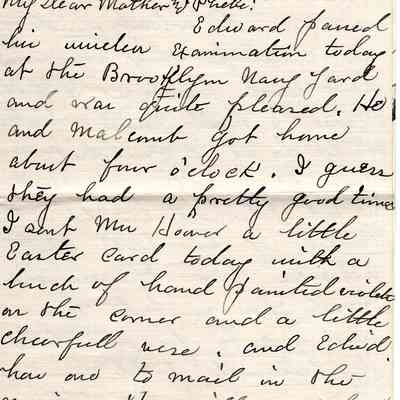 My dear Mother &
Edward passed
his examination today
at the Brooklyn Navy Yard
and was quite pleased. He
and Malcomb got home
about four o'clock. I guess
they had a pretty good time
I sent Mrs Hoover a little
Easter card today with a
bunch of hand painted violets
on the corner and a little
cheerfull verse. and Edw'd.
has one to mail in the